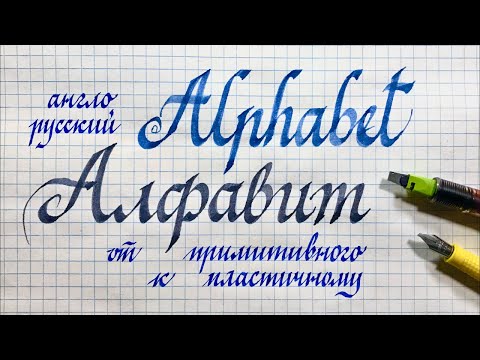 англо
русский
Alphabet
Алфавит
от примитивного
к пластичному